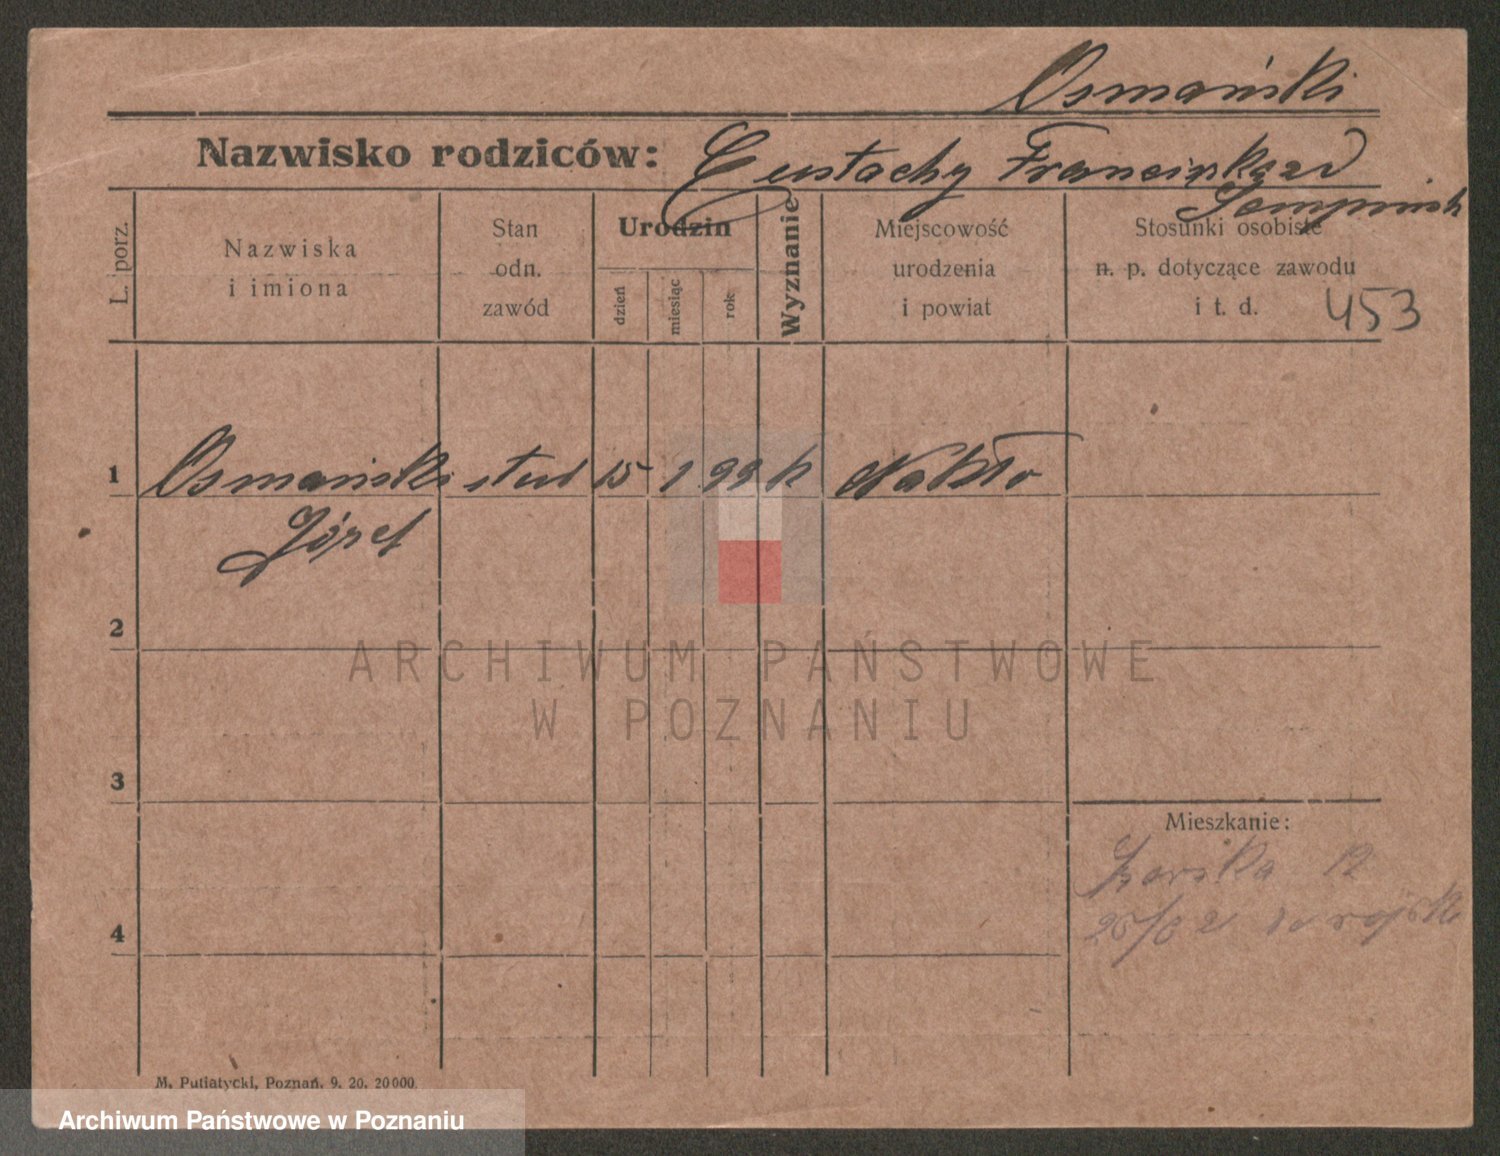 Osmański
Nazwisko rodziców: Eustachy Franciszka zd
L. porz.
Nazwiska
i imiona
Stan
odn.
zawód
Urodzin
dzień
miesiąc
rok
Wyznanie
Miejscowość
urodzenia
i powiat
Stosunki osobiste
n. p. dotyczące zawodu
i t. d.
453
1 Osmański stud 15 1 99 k Nakło
Józef
2
3
4
Mieszkanie:
12
ARCHIWUM PAŃSTWOWE
W POZNANIU
M. Putiatycki, Poznań. 9. 20. 20000.
Archiwum Państwowe w Poznaniu